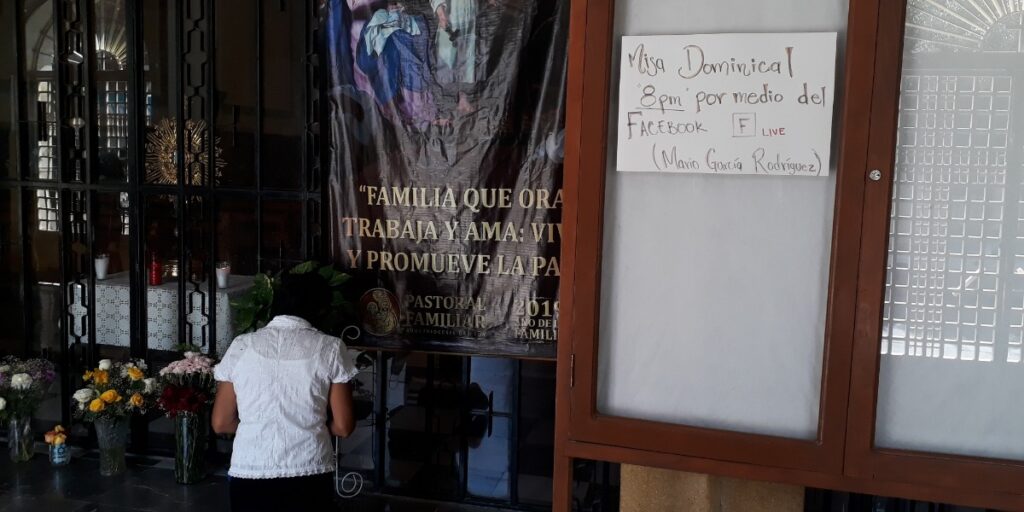 Misa Dominical
"8pm" por medio del
FACEBOOK F LIVE
(Mario García Rodríguez)
"FAMILIA QUE ORA
TRABAJA Y AMA: VIV
Y PROMUEVE LA PA
PASTORAL
FAMILIAR
2019
FAMILI